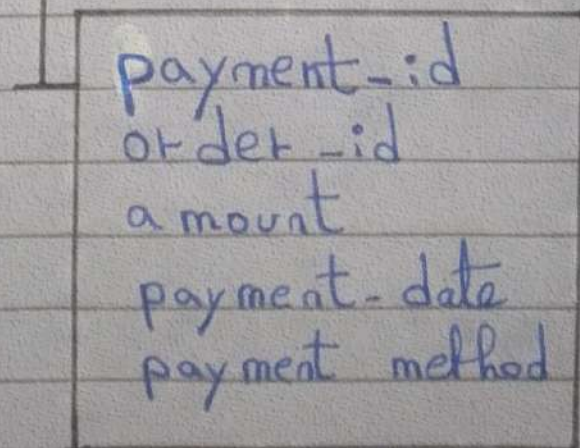 payment_id
order_id
amount
payment_date
payment method